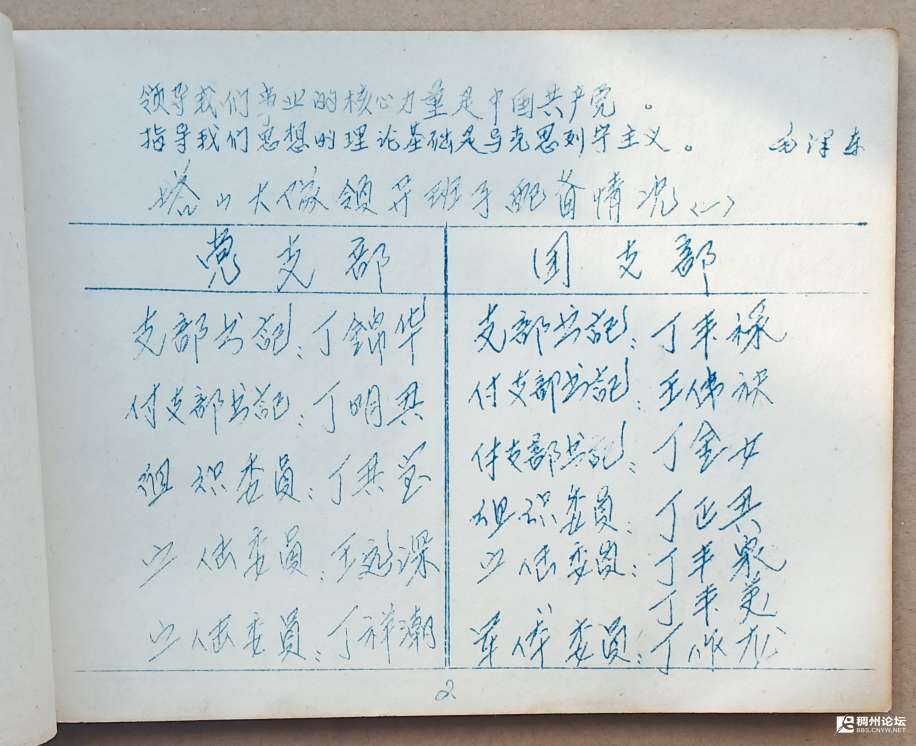 领导我们事业的核心力量是中国共产党。
指导我们思想的理论基础是马克思列宁主义。 毛泽东
塔山大队领导班子配备情况(一)
党支部
支部书记:丁锦华
付支部书记:丁明
组织委员:丁
委员:王
委员:丁祥潮
团支部
支部书记:丁丰禄
付支部书记:王伟
付支部书记:丁金女
组织委员:丁正
委员:丁丰
丁丰英
军体委员:丁
2
稠州论坛
BBS.CNYW.NET